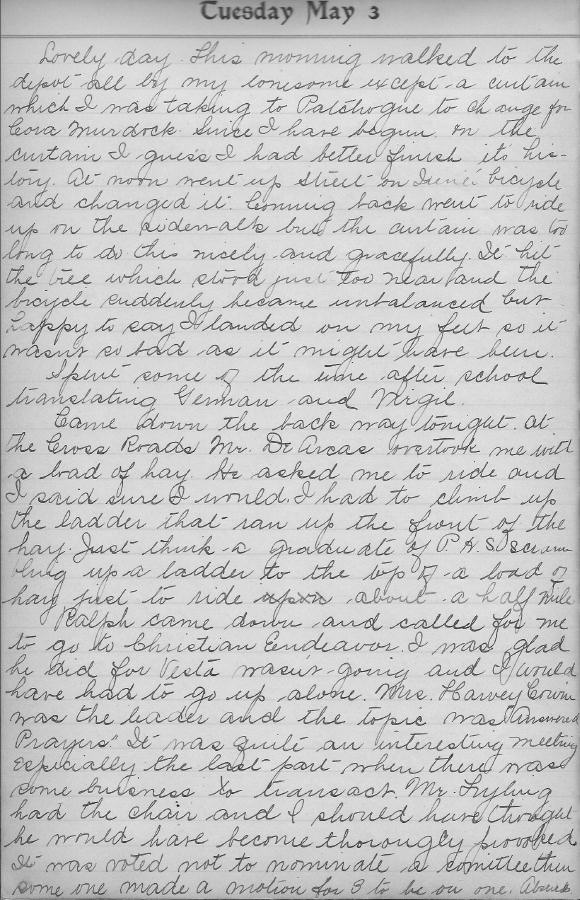 Tuesday May 3
Lovely day. This morning walked to the
depot all by my lonesome except a curtain
which I was taking to Patchogue to change for
Cora Murdock. Since I have begun on the
curtain I guess I had better finish its his-
tory. At noon went up street on bicycle
and changed it. Coming back went to ride
up on the sidewalk but the curtain was too
long to do this nicely and gracefully. It hit
the tree which stood just too near and the
bicycle suddenly became unbalanced but
happy to say I landed on my feet so it
wasnt so bad as it might have been.
Spent some of the time after school
translating German and Virgil.
Came down the back way tonight. At
the Cross Roads Mr. De Arcas overtook me with
a load of hay. He asked me to ride and
I said sure I would. I had to climb up
the ladder that ran up the front of the
hay. Just think a graduate of P.H.S. scram
bling up a ladder to the top of a load of
hay just to ride about a half mile
Ralph came down and called for me
to go to Christian Endeavor. I was glad
he did for Vesta wasn't going and I would
have had to go up alone. Mrs. Harvey
was the leader and the topic was "Answered
Prayers." It was quite an interesting meeting
especially the last part when there was
some business to transact. Mr.
had the chair and I should have thought
he would have become thorougly provoked.
It was voted not to nominate a comittee then
some one made a motion for 3 to be on one.